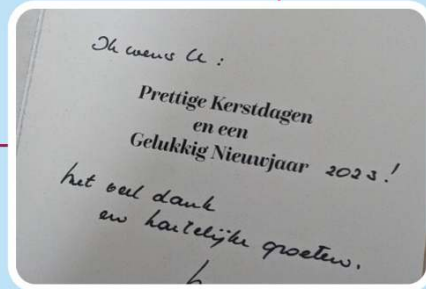 Ik wens U :
Prettige Kerstdagen
en een
Gelukkig Nieuwjaar 2023!
Met veel dank
en hartelijke groeten.